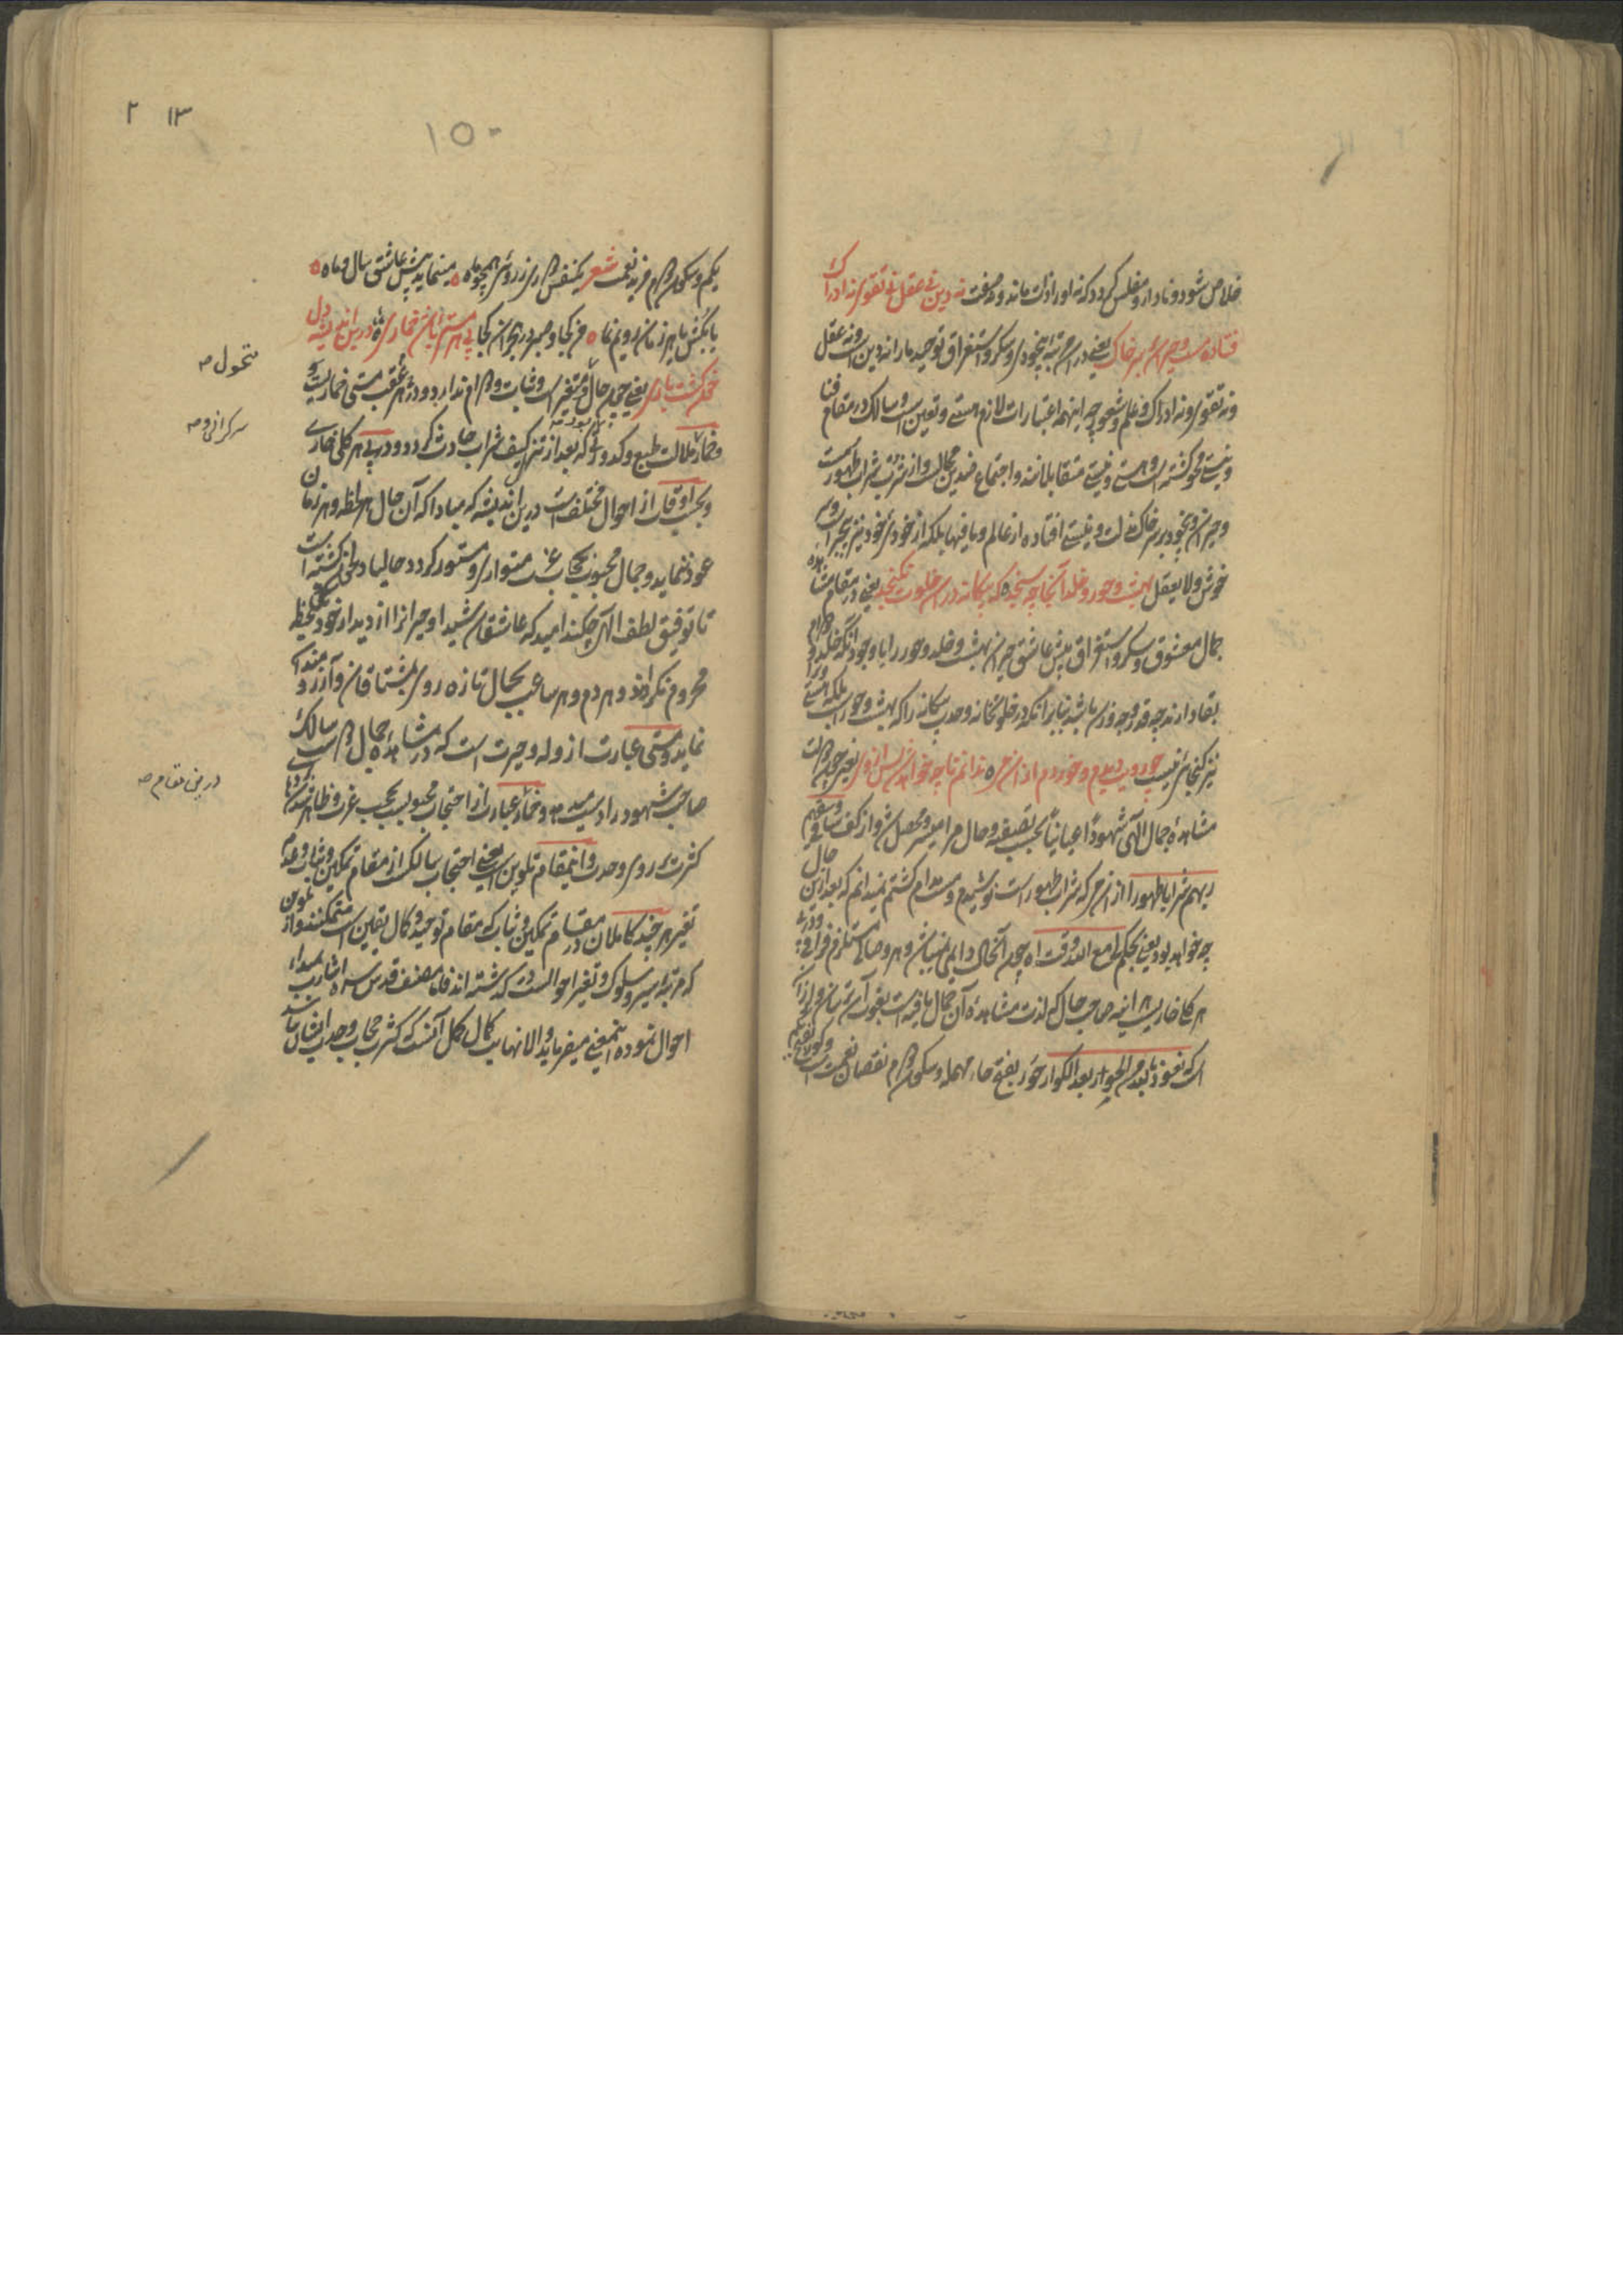 خلاص شود و نادار و مفلس گردد که نه او را ذات ماند و نه صفت نه دین نی عقل نی تقوی نه ادراک
فتاده مست و حیران بر سر خاک یعنی در این مرتبه بیخودی و سکر و استغراق توحید ما را نه دین است و نه عقل
و نه تقوی و نه ادراک و علم و شعور چه اینهمه اعتبارات لازم هستی و تعین است و سالک در مقام فنا
و نیست و محو گشته است و هستی و نیستی متقابلانند و اجتماع ضدین محالست و از شرب شراب طهور مست
و حیران و بیخود بر سر خاک مذلت و نیستی افتاده از عالم و مافیها بلکه از خودی خود نیز بیخبر است
خوش و لا یعقل بهشت و حور و خلد آنجا چه سنجد که بیگانه در آن خلوت نگنجد یعنی در مقام مشاهده
جمال معشوق و سکر و استغراق پیش عاشق حیران بهشت و خلد و حور را با وجود آنکه خلد و دوام
بقا دارند چه قدر و چه وزن باشد بنابر آنکه در خلوتخانه وحدت بیگانه را که بهشت و حور است بلکه هستی ورا
نیز گنجایش نیست چو رویت دیدم و خوردم از آن می ندانم تا چه خواهد شد پس از وی یعنی چون دولت
مشاهده جمال الهی شهودا عیانیا بحسب تصفیه و حال مرا میسر و محصل شد و از کف ساقی و سقیهم
ربهم شرابا طهورا از آن می که شراب طهور است نوشیدم و مست مدام گشتم نمیدانم که بعد ازین حال
چه خواهد بود یعنی بحکم لی مع الله وقت چون آنحال دایمی نمیباشد و هر وصالی مستلزم فراقی و در پی
هر گلی خاریست هر آینه صاحب حال که لذت مشاهده آن جمال یافته است بفوت آن ترسان و لرزان
است که نعوذ بالله من الحور بعد الکور حور بفتح حاء مهمله و سکون واو نقصان نعمت است و کور بفتح
کم و سکون واو مزید نعمت شعر یکنفس دوری ز روی همچو ماه مینماید پیش عاشق سال و ماه
یا بکش یا هر زمان رویم نما من کجا و صبر در هجران کجا پی هر مستیی باشد خماری درین اندیشه دل
خون گشت باری یعنی چون حال متغیر است و ثبات و دوام ندارد و در عقب هر مستی خماریست و
خمار ملالت طبع و کدورتی که بعد از تنزل کیف شراب حادث گردد و در پی هر گلی خاری
و بحسب اوقات از احوال مختلف است درین اندیشه که مبادا که آن حال هر لحظه و هر زمان
عود ننماید و جمال محبوب بحجاب عزت متواری و مستور گردد حالیا دل خون گشته است
تا توفیق لطف الهی چکند امید که عاشقان شیدا و حیران را از دیدار خود بیحظ
محروم نگرداند و هر دم و هر ساعت بجمال تازه روی بمشتاقان و آرزومند
نماید و مستی عبارت از وله و حیرت است که در مشاهده جمال دوست سالک
صاحب شهود را دست میدهد و خمار عبارت از احتجاب محبوب بحجب عزت و ظاهر شدن
کثرت بر روی وحدت و اینمقام تلوین است یعنی احتجاب سالک از مقام تمکین و ثبات و عدم
تغیر هر چند کاملان در مقام تمکین و ثبات که مقام توحید و کمال یقین است متمکنند و از تلوین
که مرتبه سیر و سلوک و تغیر احوالست در گذشته اند فاما مصنف قدس سره اشارت بمبداء
احوال نموده اینمعنی میفرماید و الا نهایت کمال کمل آنست که کثرت حجاب وحدت ایشان نباشد
۱۵۰
۲ ۱۳
متحول صه
سرگرانی و صه
در ین مقام صه